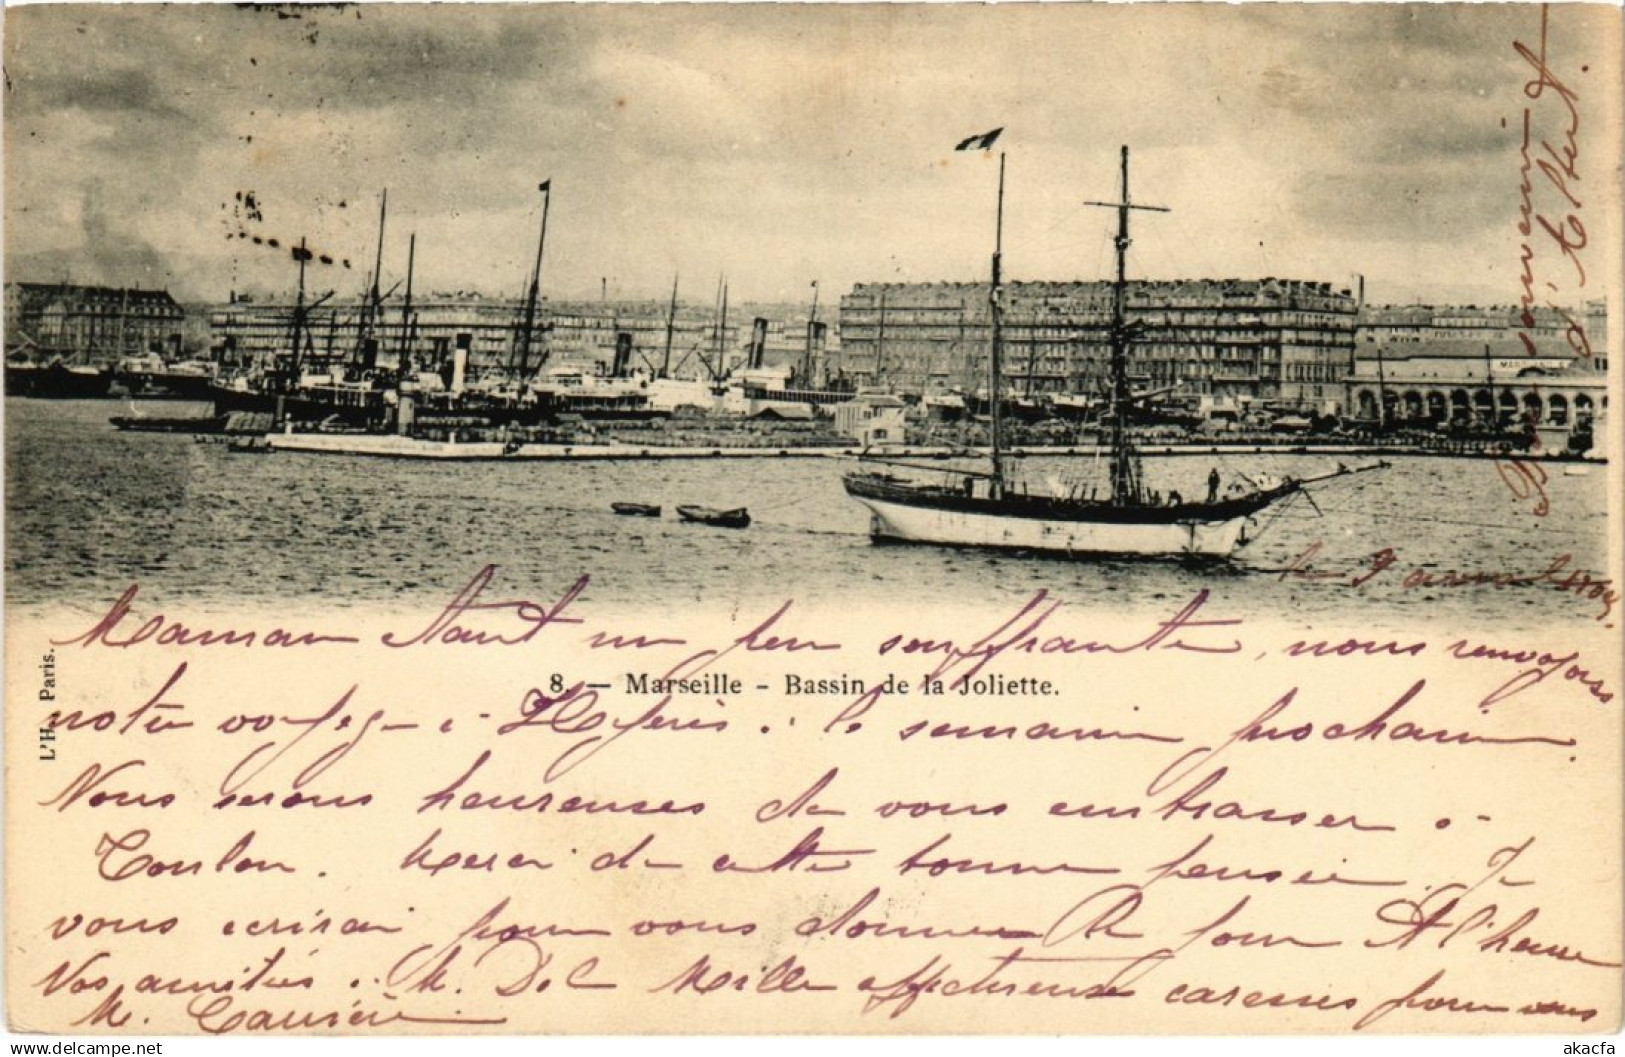 Bon souvenir
d'Albert.
le 9 avril
Maman étant un peu souffrante, nous renvoyons
8. — Marseille - Bassin de la Joliette.
L'H. Paris.
notre voyage à Hyères à la semaine prochaine.
Nous serons heureuses de vous embrasser à
Toulon. Merci de cette bonne pensée. Je
vous écrirai pour vous donner le jour et l'heure
Vos amitiés à M. Mille affectueuses caresses pour vous
M.
delcampe.net
akacfa